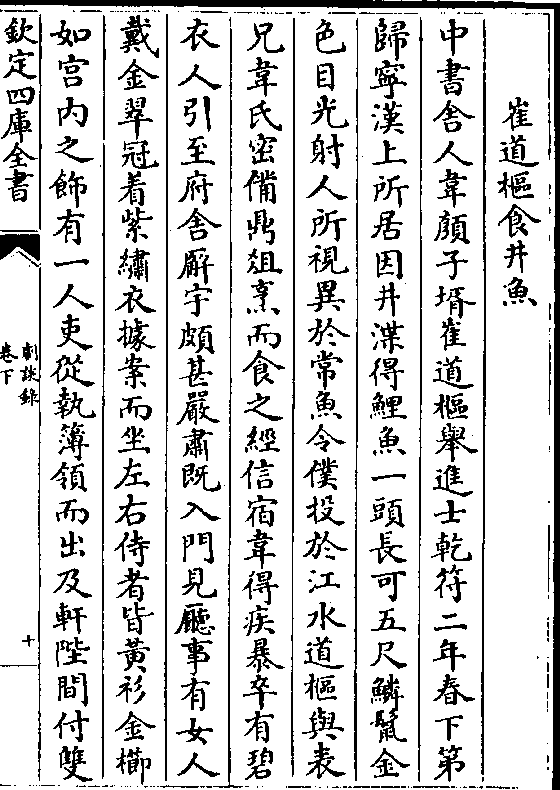 崔道樞食井魚
中書舍人韋顔子壻崔道樞舉進士乾符二年春下第
歸寧漢上所居因井渫得鯉魚一頭長可五尺鱗鬛金
色目光射人所視異於常魚令僕投於江水道樞與表
兄韋氏密備鼎俎烹而食之經信宿韋得疾暴卒有碧
衣人引至府舍廨宇頗甚嚴肅既入門見廳事有女人
戴金翠冠着紫繡衣據案而坐左右侍者皆黃衫金櫛
如宫内之飾有一人吏從執簿領而出及軒陛間付雙
欽定四庫全書
劇談錄
卷下
十